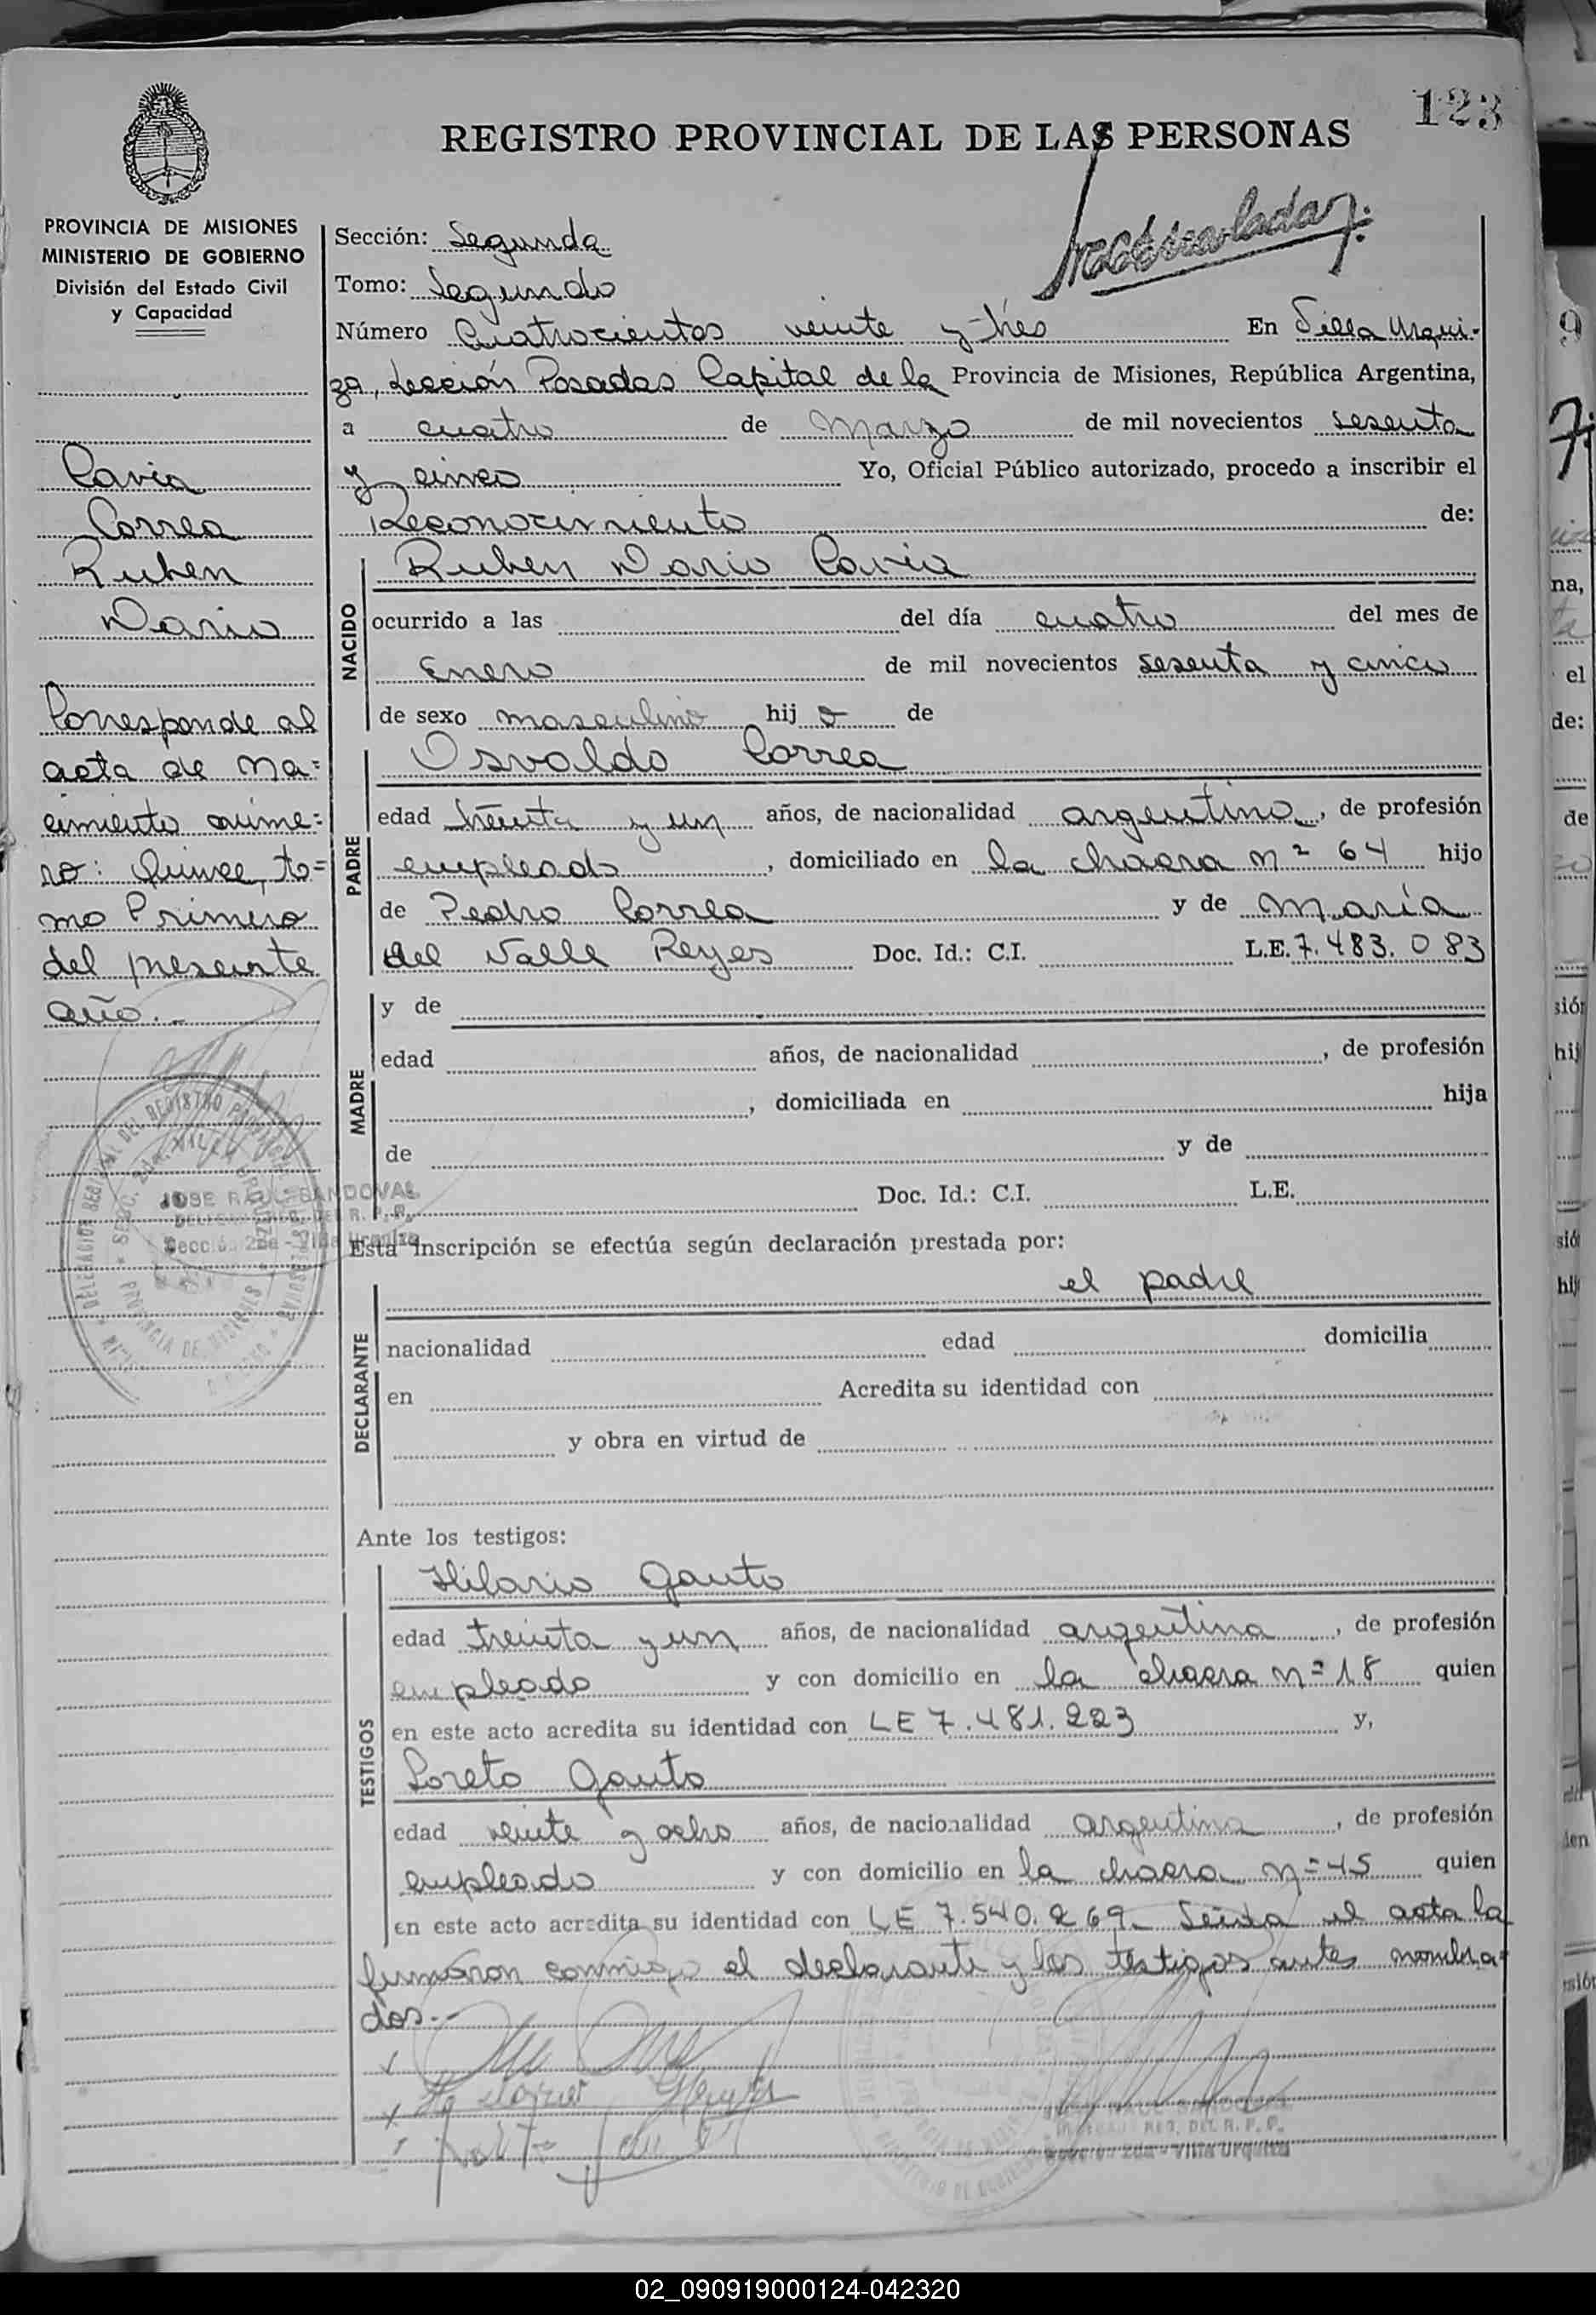 123
REGISTRO PROVINCIAL DE LAS PERSONAS
PROVINCIA DE MISIONES
MINISTERIO DE GOBIERNO
División del Estado Civil
y Capacidad
Cavia
Correa
Ruben
Dario
Corresponde al
acta de na=
cimiento núme=
ro: Quince, to=
mo Primero
del presente
año.-
JOSE RAUL SANDOVAL
Sección 2da - Villa Urquiza
Sección: Segunda
Tomo: Segundo
Número Cuatrocientos veinte y tres En Villa Urqui-
za, Sección Posadas Capital de la Provincia de Misiones, República Argentina,
a cuatro de Marzo de mil novecientos sesenta
y cinco Yo, Oficial Público autorizado, procedo a inscribir el
Reconocimiento de:
NACIDO
Ruben Dario Cavia
ocurrido a las del día cuatro del mes de
Enero de mil novecientos sesenta y cinco
de sexo masculino hijo de
PADRE
Osvaldo Correa
edad treinta y un años, de nacionalidad argentino, de profesión
empleado, domiciliado en la chacra nº 64 hijo
de Pedro Correa y de María
del Valle Reyes Doc. Id.: C.I. L.E. 7.483.083
MADRE
y de
edad años, de nacionalidad , de profesión
, domiciliada en hija
de y de
Doc. Id.: C.I. L.E.
Esta inscripción se efectúa según declaración prestada por:
DECLARANTE
el padre
nacionalidad edad domicilia
en Acredita su identidad con
y obra en virtud de
Ante los testigos:
TESTIGOS
Hilario Gauto
edad treinta y un años, de nacionalidad argentina, de profesión
empleado y con domicilio en la chacra n=18 quien
en este acto acredita su identidad con LE 7.481.223 y,
Loreto Gauto
edad veinte y ocho años, de nacionalidad argentina, de profesión
empleado y con domicilio en la chacra n=45 quien
en este acto acredita su identidad con LE 7.540.269- Leída el acta la
firmaron conmigo el declarante y los testigos antes nombra=
dos.-
Sección 2da - Villa Urquiza
02_090919000124-042320